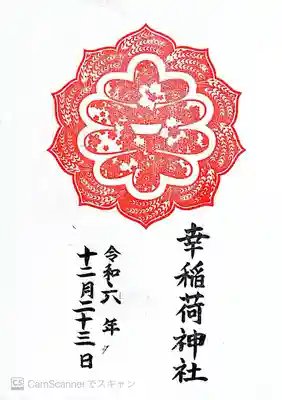 幸稲荷神社
令和六年
十二月二十三日
CS CamScannerでスキャン